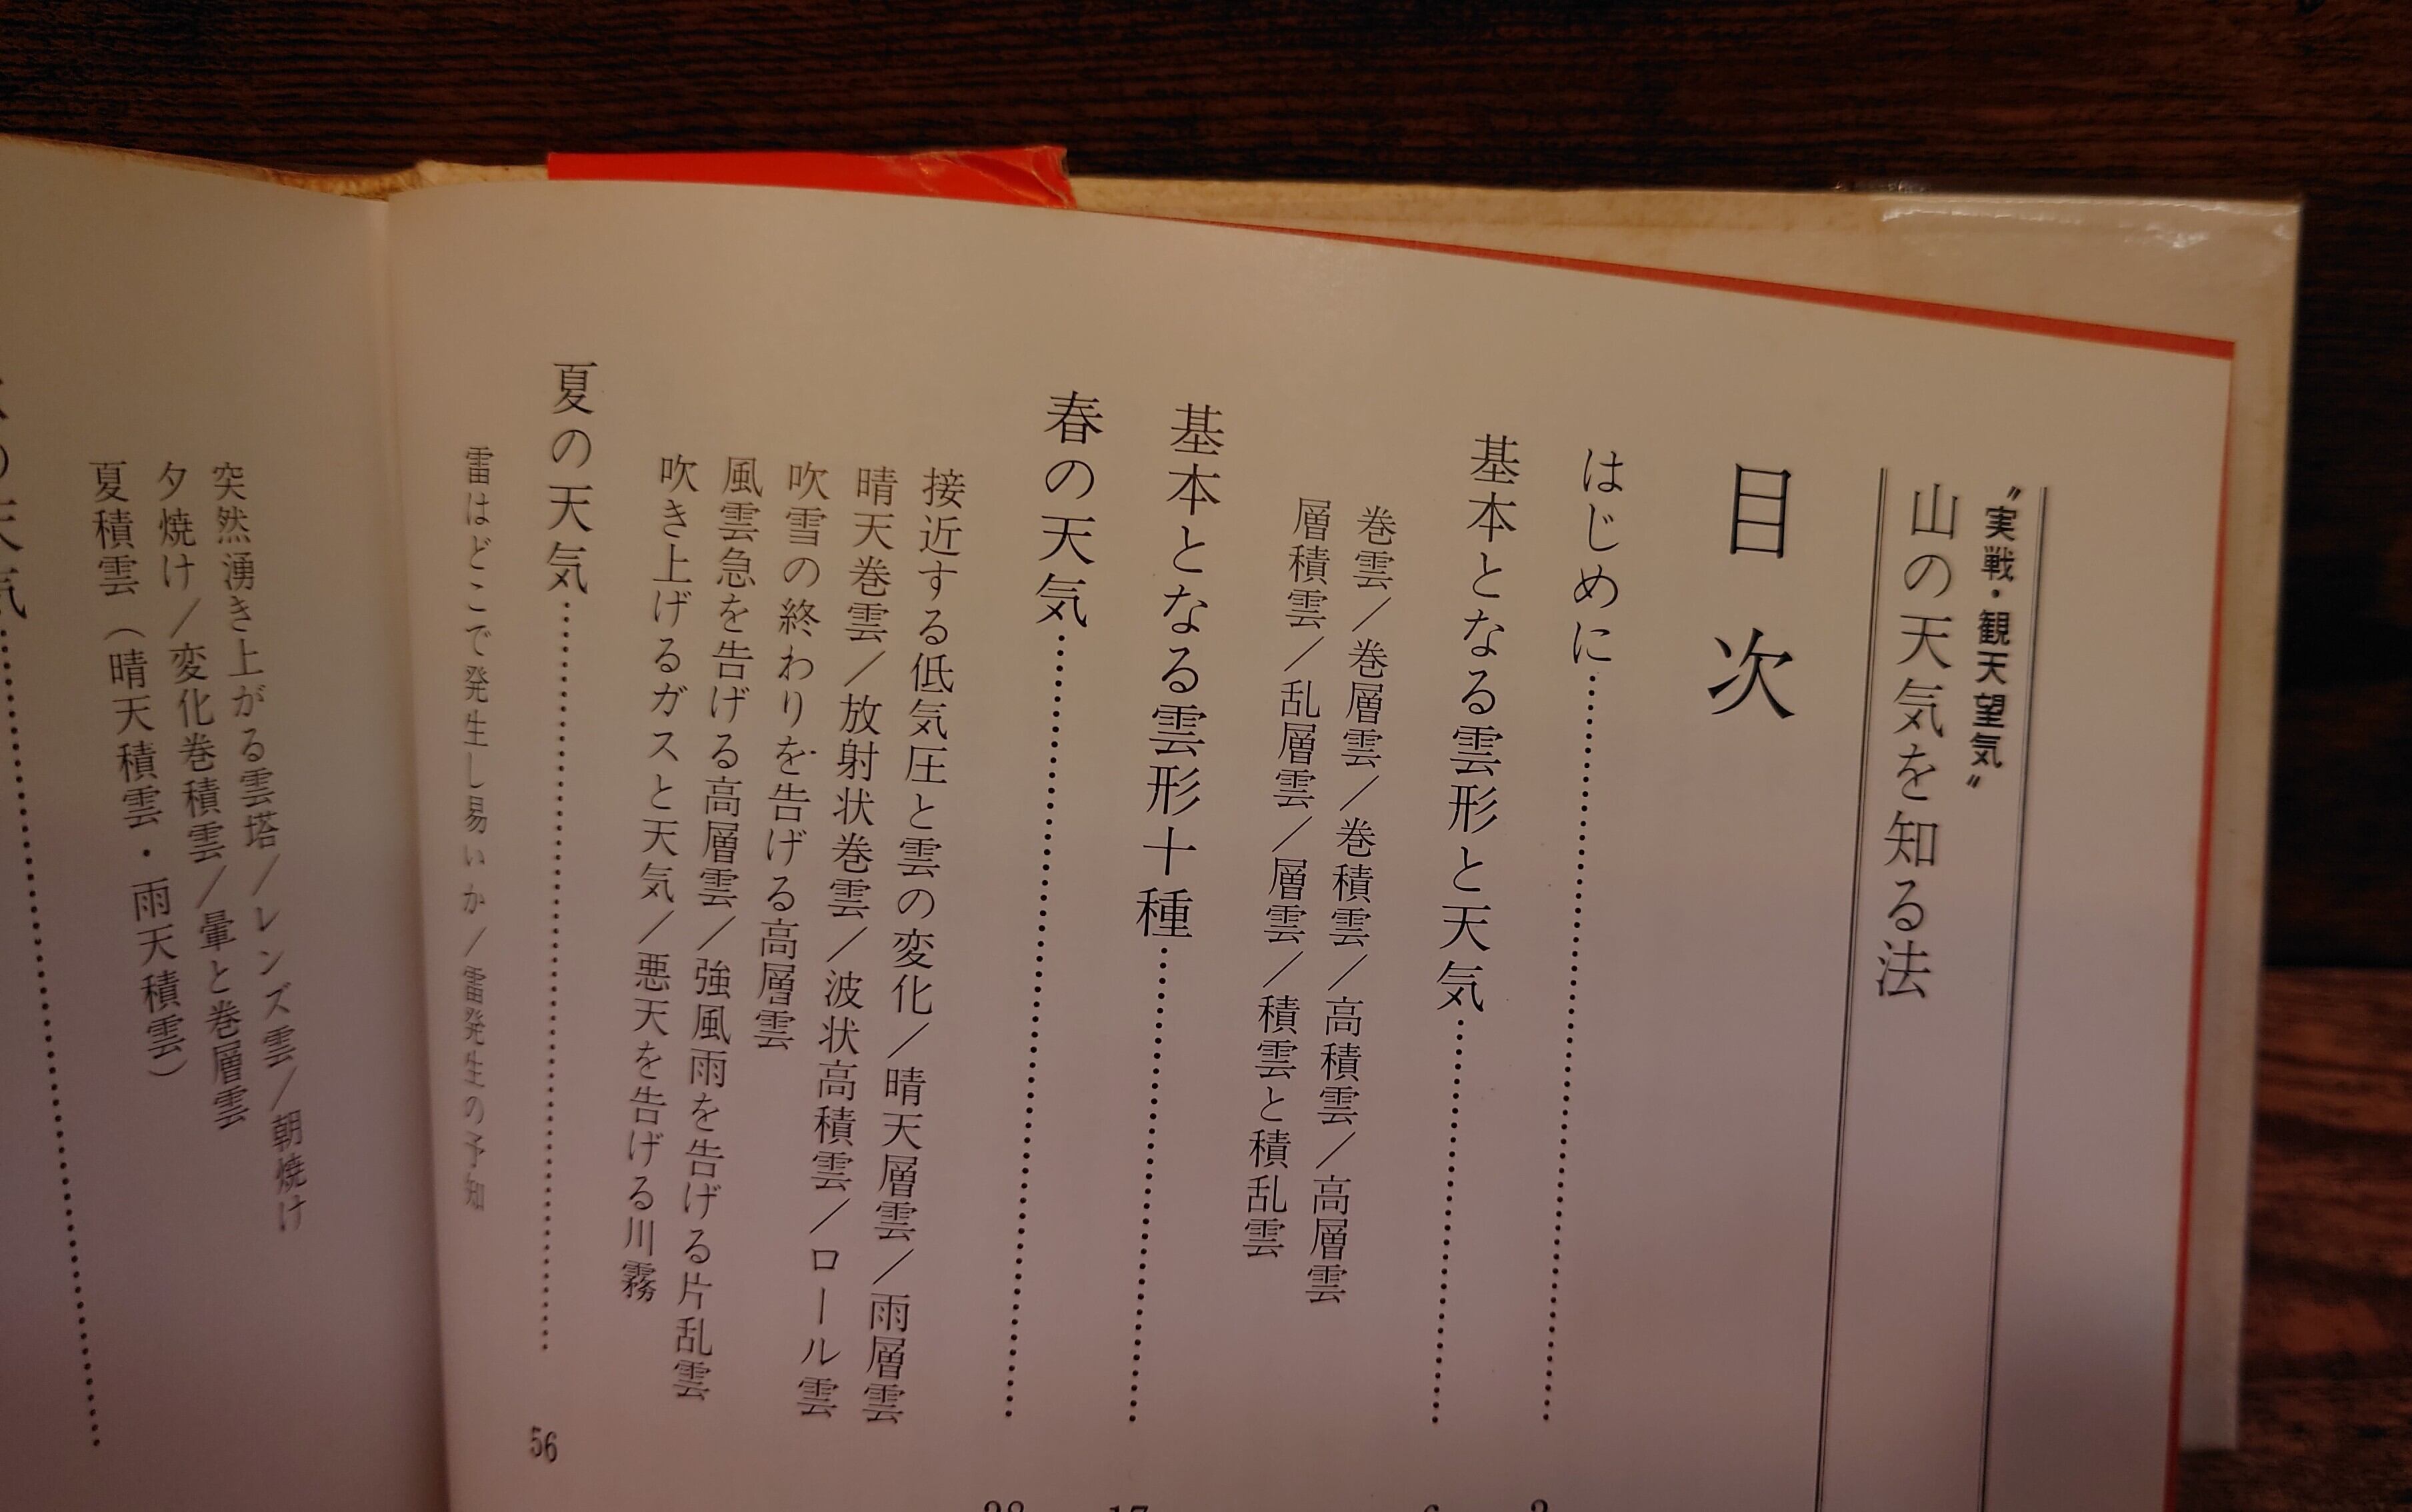 〝実戦・観天望気〟
山の天気を知る法
目次
はじめに……………………
基本となる雲形と天気……………………
巻雲／巻層雲／巻積雲／高積雲／高層雲
層積雲／乱層雲／層雲／積雲と積乱雲
基本となる雲形十種……………………
春の天気……………………
接近する低気圧と雲の変化／晴天層雲／雨層雲
晴天巻雲／放射状巻雲／波状高積雲／ロール雲
吹雪の終わりを告げる高層雲
風雲急を告げる高層雲／強風雨を告げる片乱雲
吹き上げるガスと天気／悪天を告げる川霧
夏の天気……………………56
雷はどこで発生し易いか／雷発生の予知
突然湧き上がる雲塔／レンズ雲／朝焼け
夕焼け／変化巻積雲／暈と巻層雲
夏積雲（晴天積雲・雨天積雲）
の天気……………………